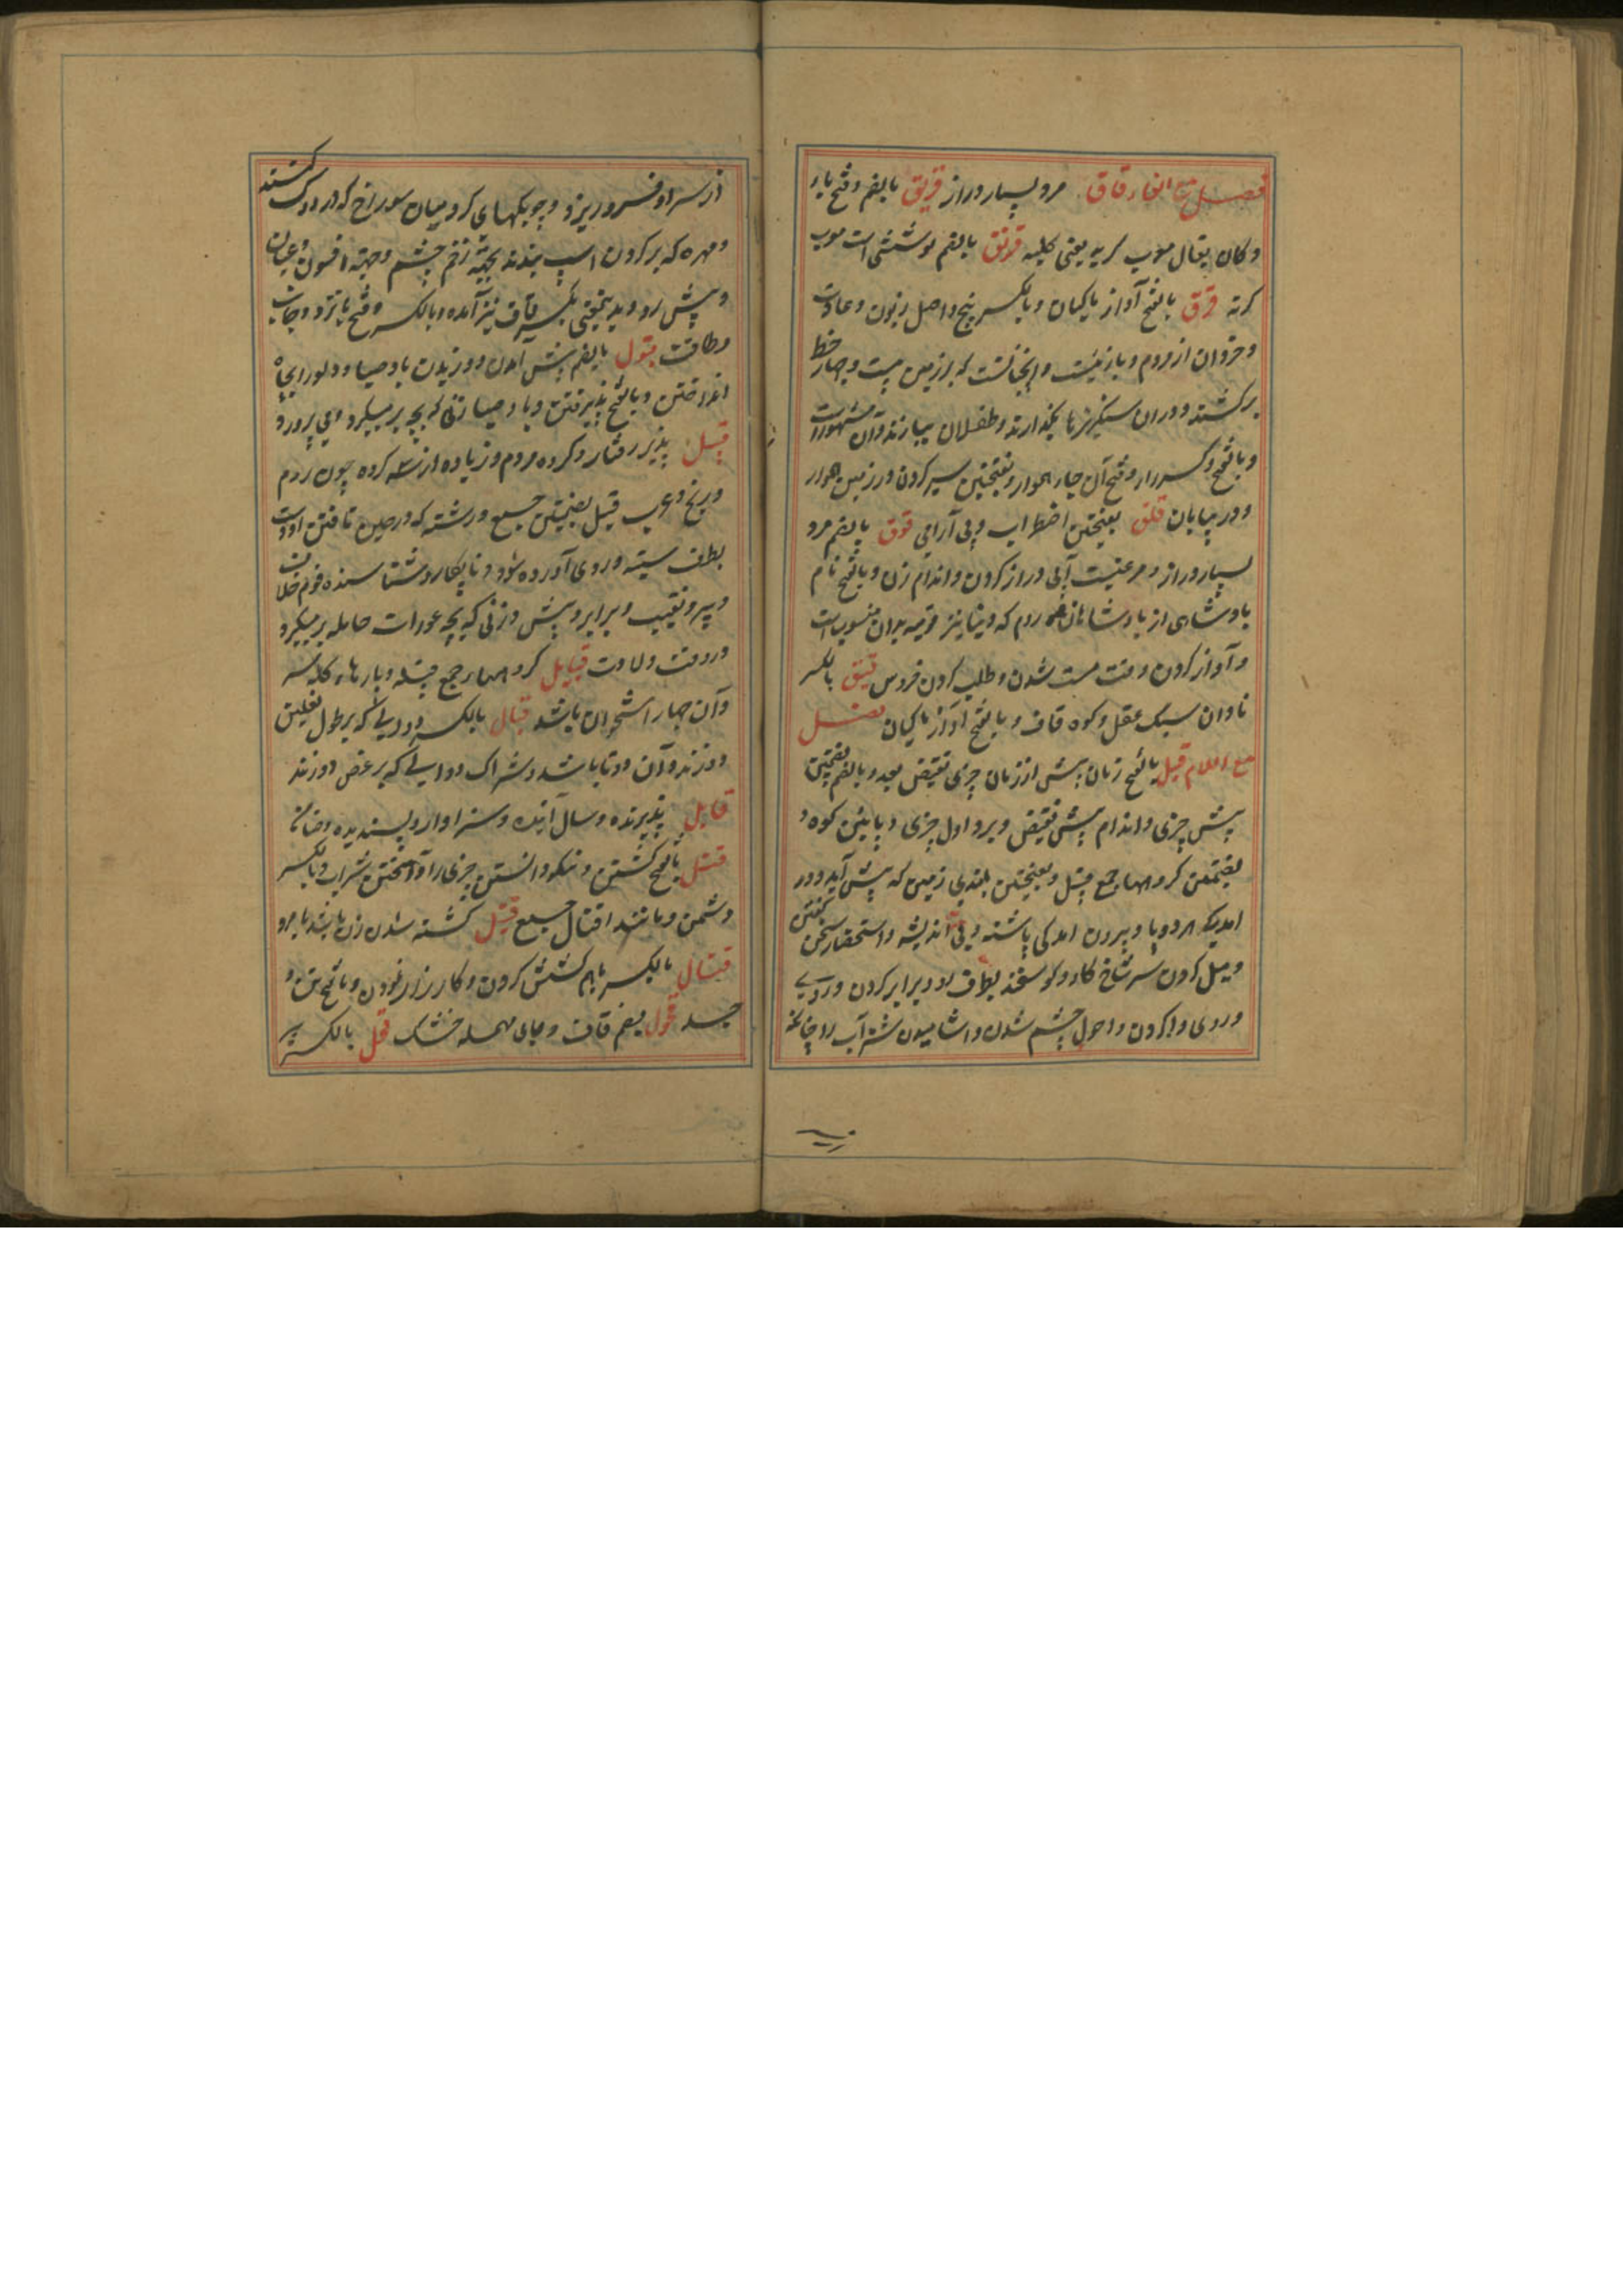 فصل مع القاف قاق مرد بسیار دراز قریق بالضم و فتح یاء
دکان بقال معرب کربه یعنی کلبه قرتق بالضم پوششی است معرب
کرته قرق بالفتح آواز ماکیان و بالکسر بیخ و اصل زبون و عادت
و خردان از مردم و بازئیست و آنچنانست که بر زمین بیست و چهار خط
برکشند و دران سنگریزها بگذارند و طفلان ببازند و آن مشهورات
و بالفتح و کسر راء و فتح آن جاء هموار و بفتحتین سیر کردن در زمین هموار
و در بیابان قلق بفتحتین اضطراب و بی آرامی قوق بالضم مرد
بسیار دراز و مرغیست آبی دراز گردن و اندام زن و بالفتح نام
بادشاهی از بادشاهان روم که دینار نیز قوقیه بدان منسوب است
و آواز کردن وقت مست شدن و طلب کردن خروس قیق بالکسر
نادان سبک عقل و کوه قاف و بالفتح آواز ماکیان فصل
مع اللام قبل بالفتح زمان پیش از زمان چیزی نقیض بعد و بالضم بضمتین
پیش چیزی و اندام پیش نقیض و برو اول چیزی و پایین کوه و
بضمتین گروهها جمع قبیل و بفتحتین بلندی زمین که پیش آید و در
آمدیک هر دو پا و بیرون آمدگی پاشنه و بی اندیشه و استحضار سخن گفتن
و میل کردن سر شاخ گاو و گوسفند بطرف او و برابر کردن در
و روی وا کردن و احول چشم شدن و آشامیدن شتر آب را چنانکه
از سر او فرو ریزد و چوبکهای گرد میان سوراخ که در دوک کشند
و مهره که بر گردن اسپ بندند بجهة زخم چشم و جهة افسون و عیان
و پیش رو و بدینمعنی بکسر قاف نیز آمده و بالکسر و فتح با نزد و جانب
و طاقت قبول بالضم پیش آمدن و وزیدن باد صبا و دلو را بچاه
انداختن و بالفتح پذیرفتن و باد صبا و زنی که بچه بر میگیرد و می پرورد
قبیل پذیرفتار و گروه مردم و زیاده از سه گروه چون روم
و زنج و عرب قبل بضمتین جمع و رشته که در حین تافتن او دست
بطرف سینه و روی آورده شود و نابکار و شناسنده قوم خلان
و پیر و نقیب و برابر و پیش و زنی که بچه عورات حامله بر میگیرد
در وقت ولادت قبایل گروهها جمع قبیله و پارهاء کله سر
و آن چهار استخوان باشد قبال بالکسر دوالی که بر طول نعلین
دوزند و آن دو تا باشد و شراک دوالی که بر عرض دوزند
قابل پذیرنده و سال آینده و سزاوار و پسندیده و ضامن
قتل بالفتح کشتن و نیکو دانستن چیزی را و آمیختن شراب و بالکسر
دشمن و مانند اقتال جمع قتیل کشته شده زن باشد یا مرد
قتال بالکسر با هم کشش کردن و کارزار نمودن و بالفتح تن و
جسد قحول بضم قاف و حای مهمله خشک قحل بالکسر